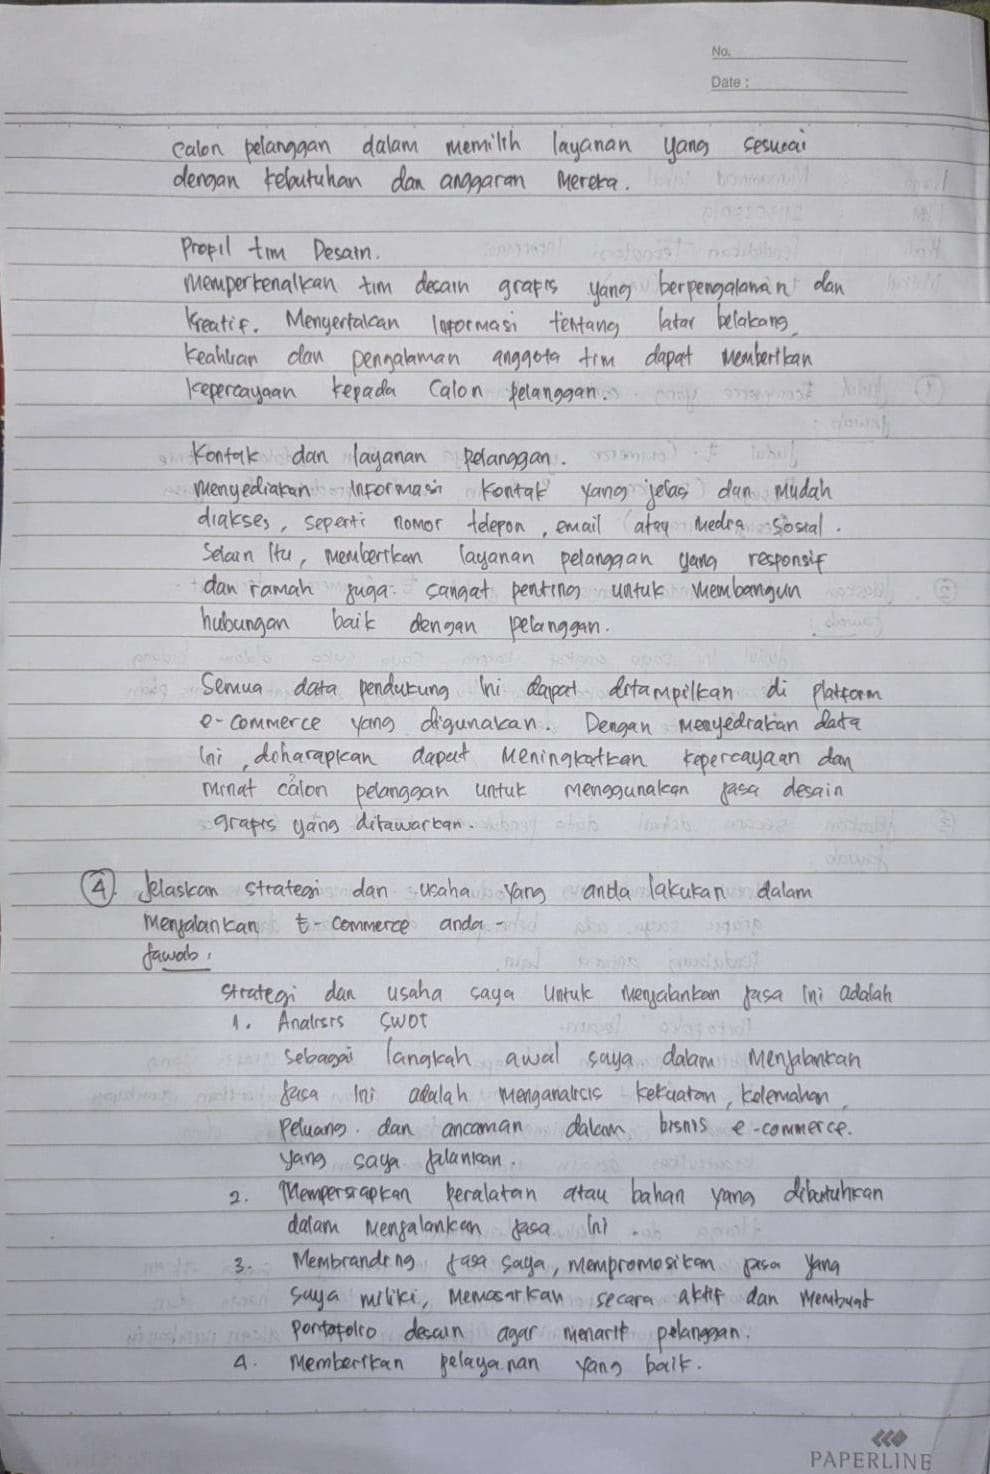 No.
Date :
calon pelanggan dalam memilih layanan yang sesuai
dengan kebutuhan dan anggaran mereka.
Profil tim Desain.
memperkenalkan tim desain grafis yang berpengalaman dan
kreatif. Menyertakan informasi tentang latar belakang
keahlian dan pengalaman anggota tim dapat memberikan
kepercayaan kepada calon pelanggan.
Kontak dan layanan pelanggan.
menyediakan informasi kontak yang jelas dan mudah
diakses, seperti nomor telepon, email atau media sosial.
Selain itu, memberikan layanan pelanggan yang responsif
dan ramah juga sangat penting untuk membangun
hubungan baik dengan pelanggan.
Semua data pendukung ini dapat ditampilkan di platform
e-commerce yang digunakan. Dengan menyediakan data
ini, diharapkan dapat meningkatkan kepercayaan dan
minat calon pelanggan untuk menggunakan jasa desain
grafis yang ditawarkan.
4. Jelaskan strategi dan usaha yang anda lakukan dalam
menjalankan E-commerce anda -
Jawab :
strategi dan usaha saya untuk menjalankan jasa ini adalah
1. Analisis SWOT
sebagai langkah awal saya dalam menjalankan
jasa ini adalah menganalisis kekuatan, kelemahan,
peluang. dan ancaman dalam bisnis e-commerce.
yang saya jalankan.
2. Mempersiapkan peralatan atau bahan yang dibutuhkan
dalam menjalankan jasa ini.
3. Membranding jasa saya, mempromosikan jasa yang
saya miliki, memasarkan secara aktif dan membuat
portofolio desain agar menarik pelanggan.
4. memberikan pelayanan yang baik.
PAPERLINE